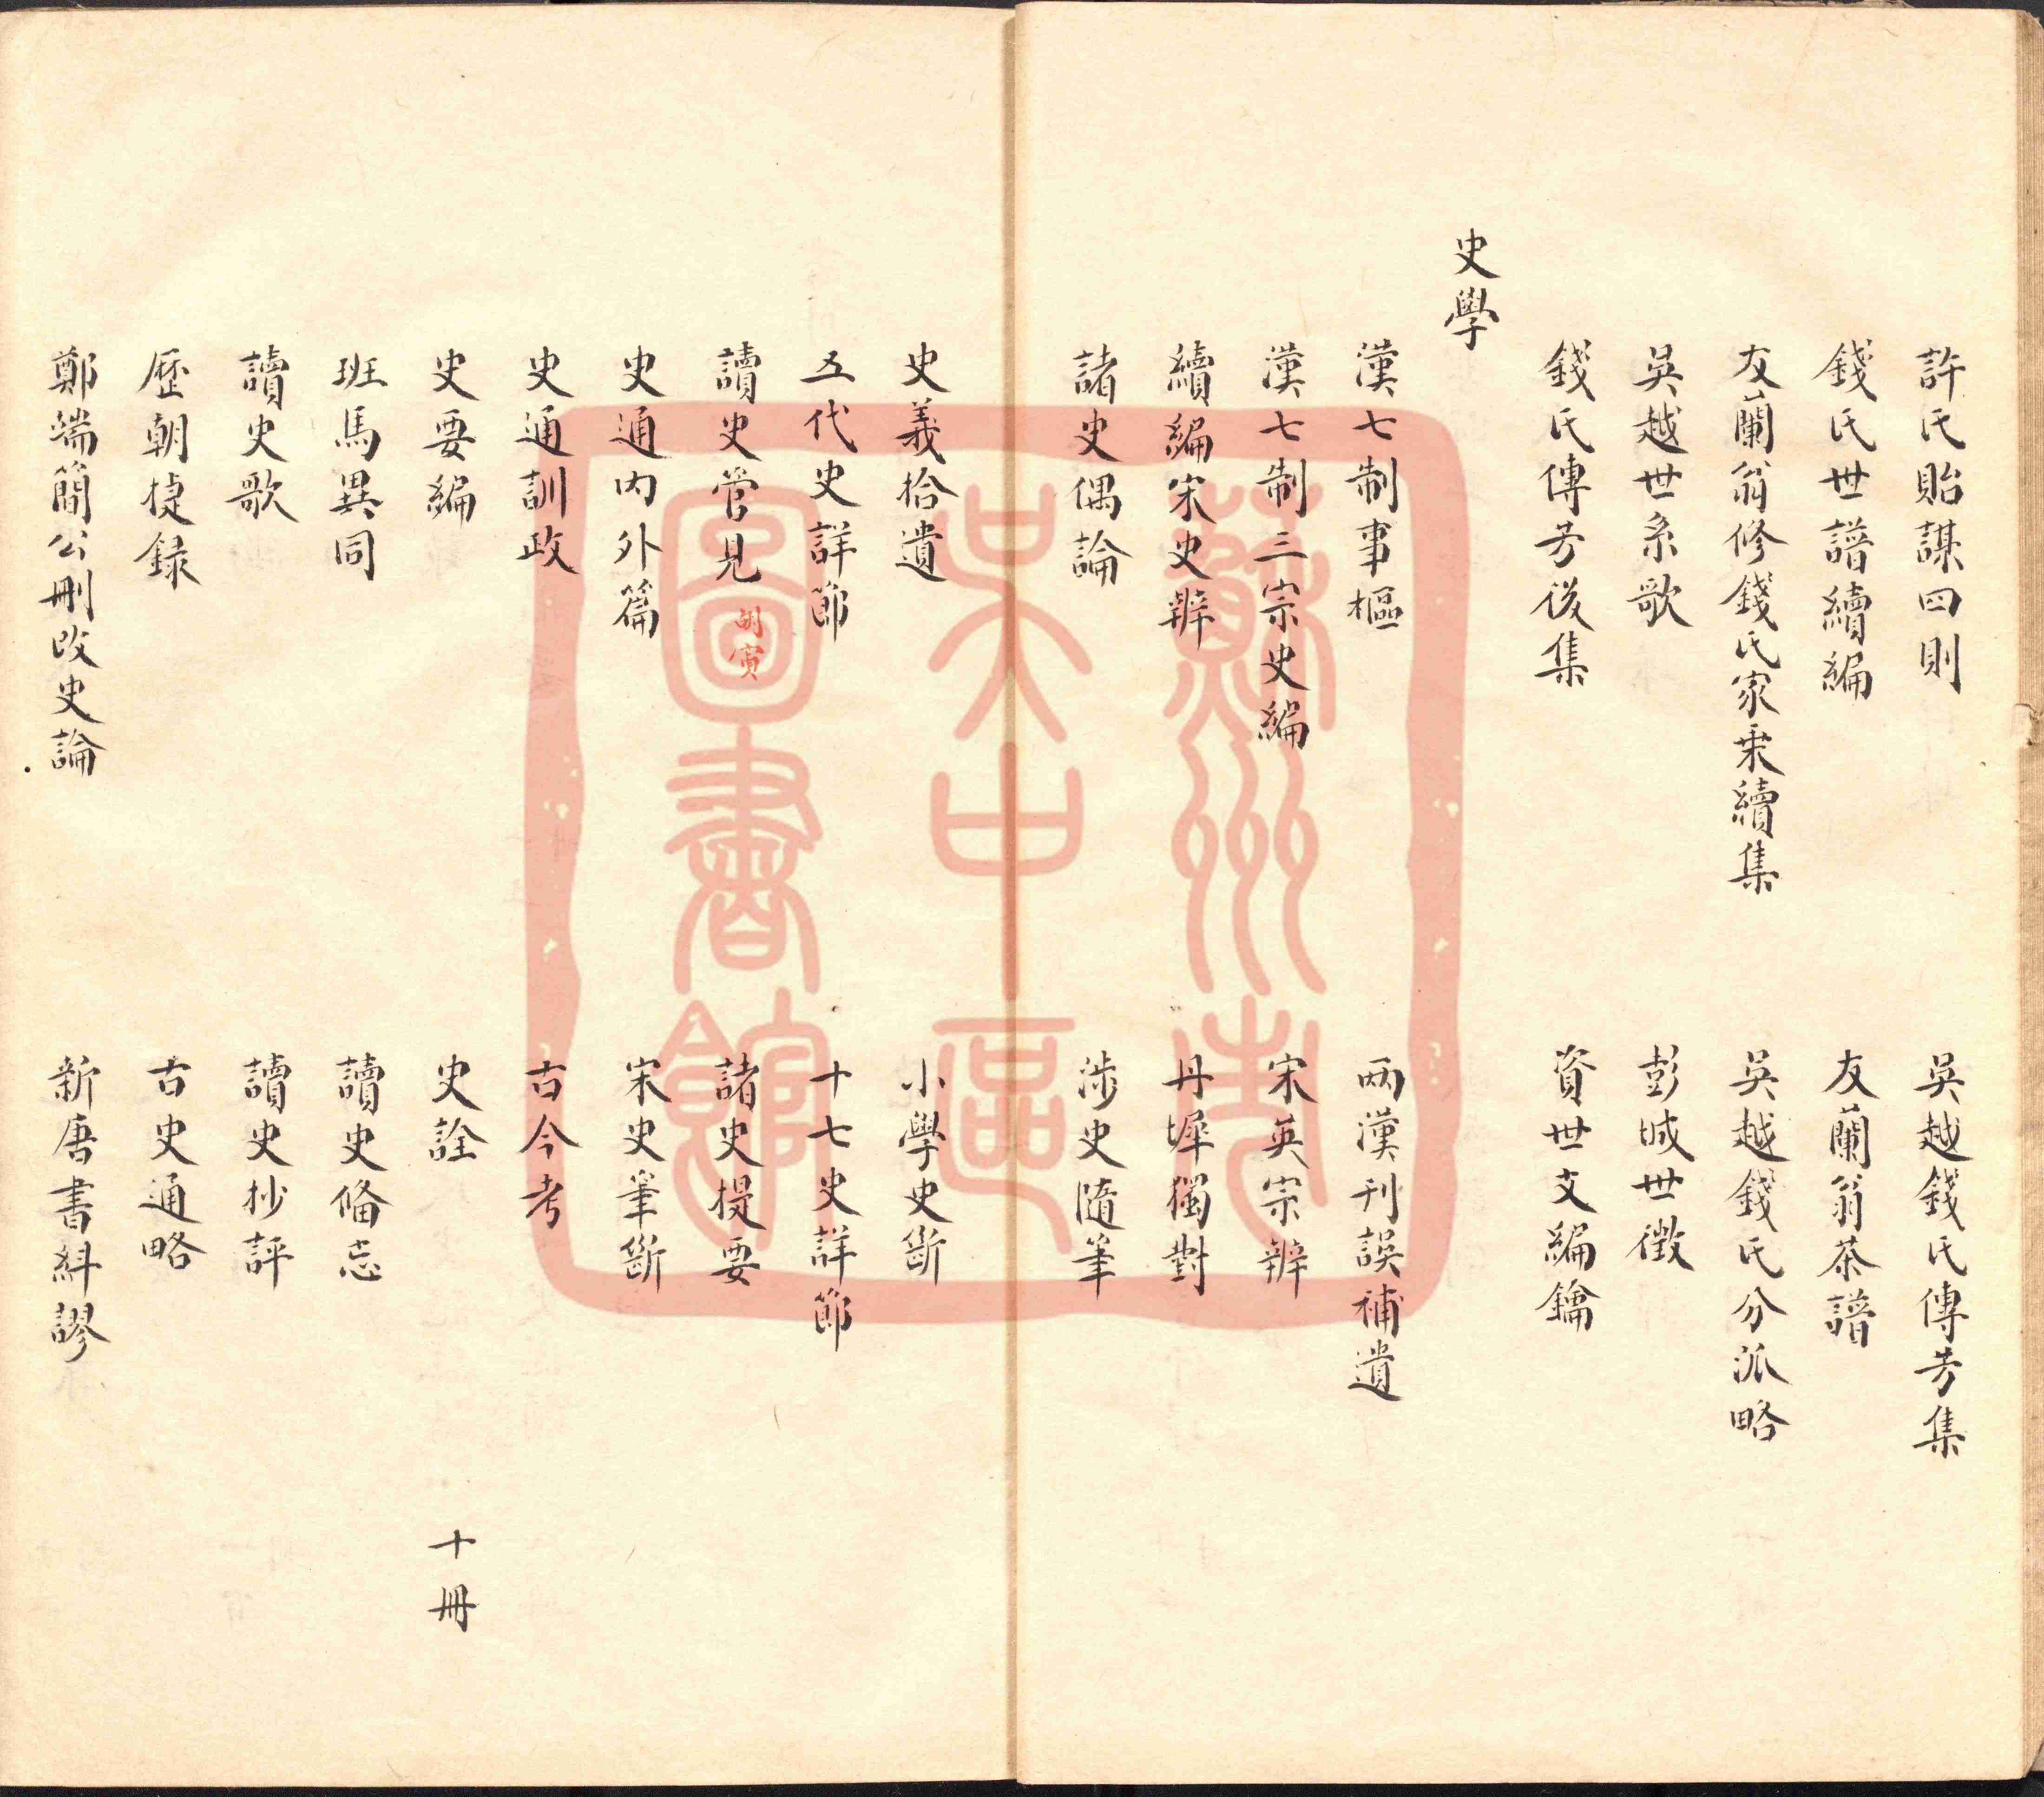 許氏貽謀四則　吳越錢氏傳芳集
錢氏世譜續編　友蘭翁茶譜
友蘭翁修錢氏家乗續集　吳越錢氏分派略
吳越世系歌　彭城世徵
錢氏傳芳後集　資世文編鑰
史學
漢七制事樞　兩漢刊誤補遺
漢七制三宗史編　宋英宗辨
續編宋史辨　丹墀獨對
諸史偶論　涉史隨筆
史義拾遺　小學史斷
五代史詳節　十七史詳節
讀史管見 胡寅　諸史提要
史通內外篇　宋史筆斷
史通訓故　古今考
史要編　史詮　十冊
班馬異同　讀史偹忘
讀史歌　讀史抄評
歷朝捷録　古史通略
鄭端簡公刪改史論　新唐書糾謬
蘇州市
吳中區
圖書館